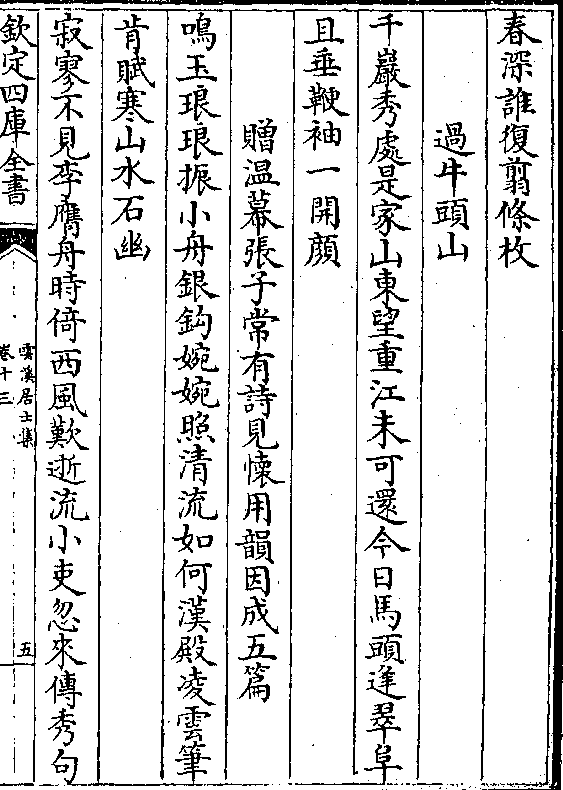 春深誰復翦條枚
過牛頭山
千巖秀處是家山東望重江未可還今日馬頭逢翠阜
且垂鞭袖一開顔
贈温幕張子常有詩見懐用韻因成五篇
鳴玉琅琅振小舟銀鈎婉婉照清流如何漢殿凌雲筆
肯賦寒山水石幽
寂寥不見李膺舟時倚西風歎逝流小吏忽來傳秀句
欽定四庫全書
雲溪居士集
卷十三
五